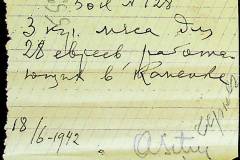 Бон № 128
3 кгр. мяса для
28 евреев работа-
ющих в Каменке
18/6-1942